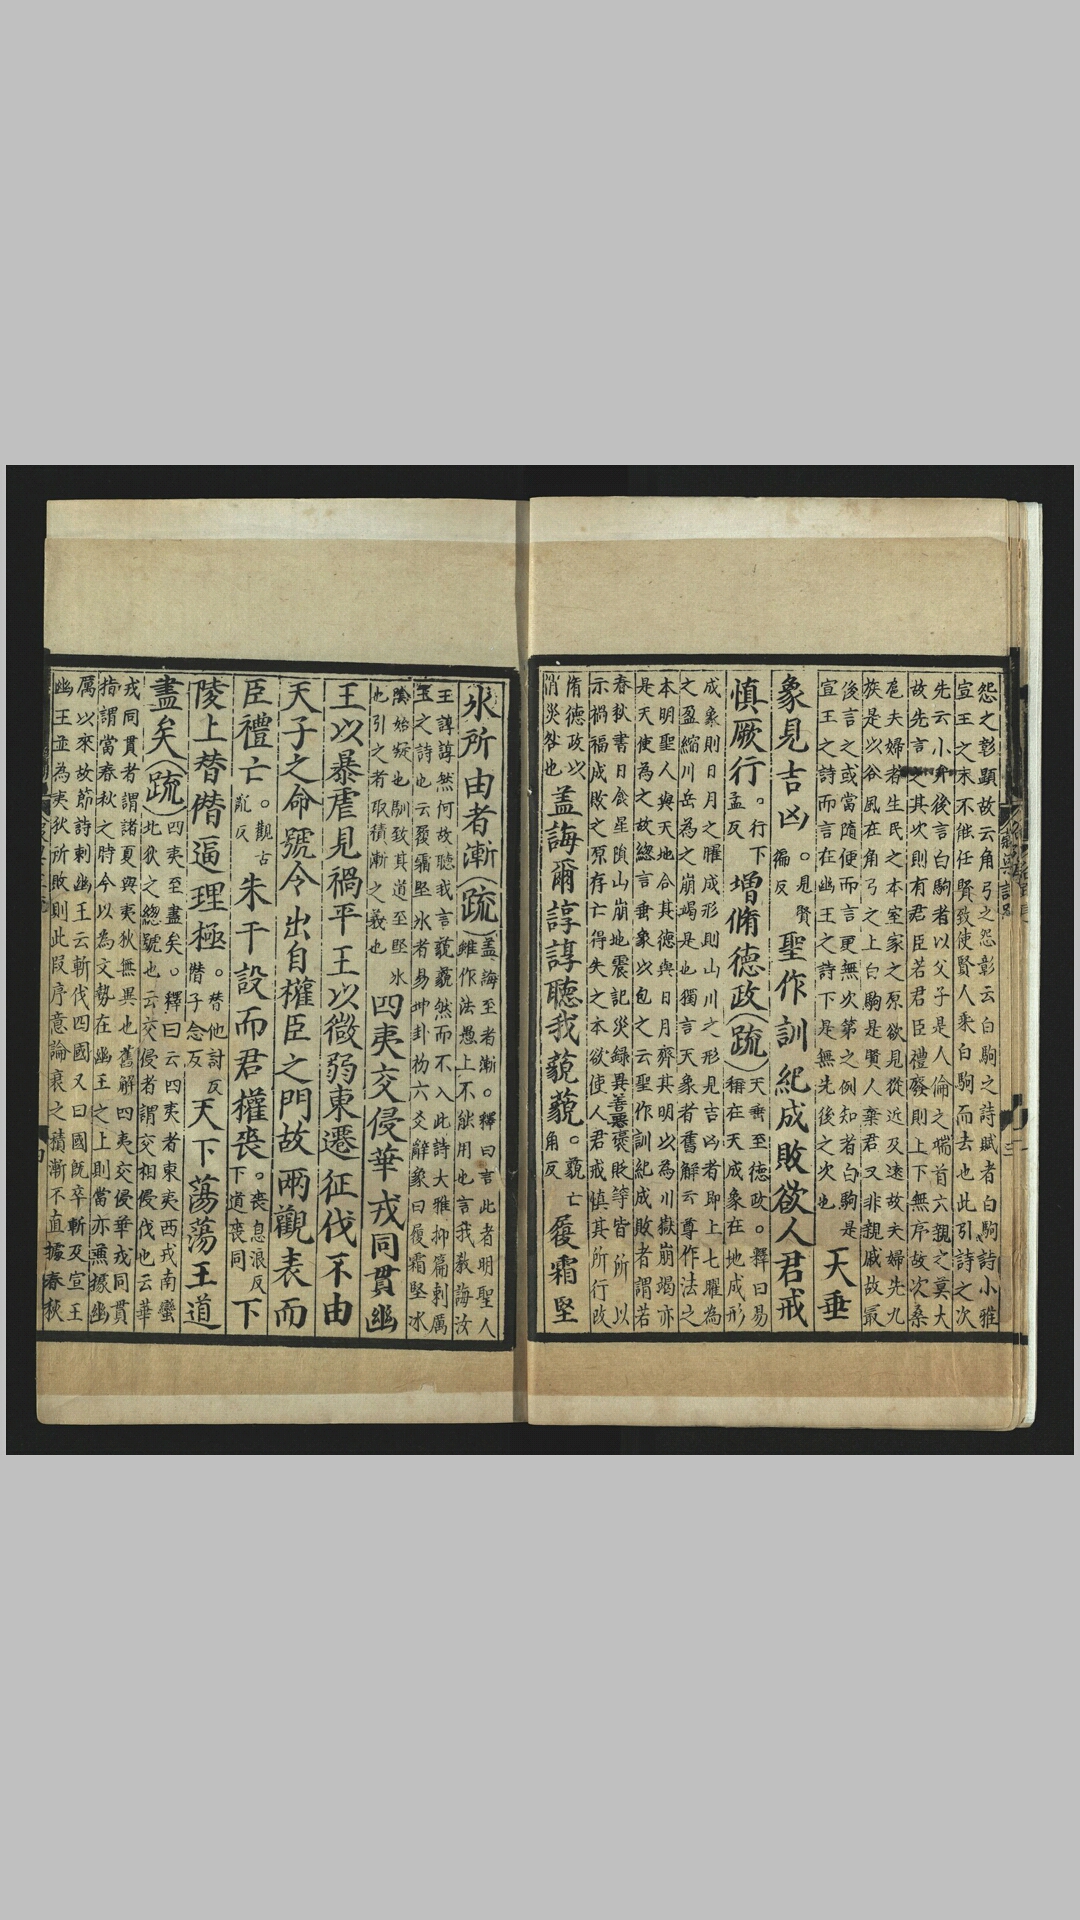 怨之彰顯故云角弓之怨彰云白駒之詩賦者白駒詩小雅
宣王之末不能任賢致使賢人乘白駒而去也此引詩之次
先云小弁後言白駒者以父子是人倫之端首六親之莫大
故先言之其次則有君臣若君臣禮廢則上下無序故次桑
扈夫婦者生民之本室家之原欲見從近及遠故夫婦先九
族是以谷風在角弓之上白駒是賢人棄君又非親戚故最
後言之或當隨便而言更無次第之例知者白駒是
宣王之詩而言在幽王之詩下是無先後之次也
天垂
象見吉凶。見賢徧反聖作訓紀成敗欲人君戒
慎厥行。行下孟反增脩德政(疏)天垂至德政。釋曰易稱在天成象在地成形
成象則日月之曜成形則山川之形見吉凶者即上七曜為
之盈縮川岳為之崩竭是也獨言天象者舊解云尊作法之
本明聖人與天地合其德與日月齊其明以為川嶽崩竭亦
是天使為之故總言垂象以包之云聖作訓紀成敗者謂若
春秋書日食星隕山崩地震記災錄異善惡褒貶等皆所以
示禍福成敗之原存亡得失之本欲使人君戒慎其所行改
脩德政以消災咎也蓋誨爾諄諄聽我藐藐。藐亡角反履霜堅
氷所由者漸(疏)蓋誨至者漸。釋曰言此者明聖人雖作法愚上不能用也言我教誨汝
王諄諄然何故聽我言藐藐然而不入此詩大雅抑篇刺厲
王之詩也云履霜堅氷者易坤卦初六爻辭象曰履霜堅冰
陰始凝也馴致其道至堅冰也引之者取積漸之義也四夷交侵華戎同貫幽
王以暴虐見禍平王以微弱東遷征伐不由
天子之命號令出自權臣之門故兩觀表而
臣禮亡。觀古亂反朱干設而君權喪。喪息浪反下道喪同下
陵上替僭逼理極。替他討反僭子念反天下蕩蕩王道
盡矣(疏)四夷至盡矣。釋曰云四夷者東夷西戎南蠻北狄之緫號也云交侵者謂交相侵伐也云華
戎同貫者謂諸夏與夷狄無異也舊解四夷交侵華戎同貫
指謂當春秋之時今以為文勢在幽王之上則當亦兼據幽
厲以來故節詩刺幽王云斬伐四國又曰國旣卒斬及宣王
幽王並為夷狄所敗則此段序意論衰之積漸不直據春秋